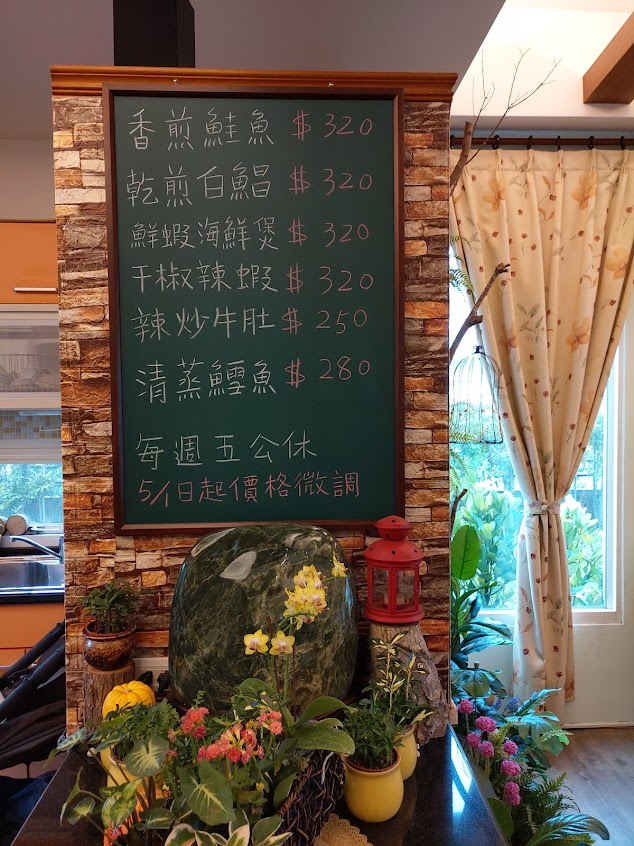 香煎鮭魚 $320
乾煎白鯧 $320
鮮蝦海鮮煲 $320
干椒辣蝦 $320
辣炒牛肚 $250
清蒸鱈魚 $280
每週五公休
5/1日起價格微調